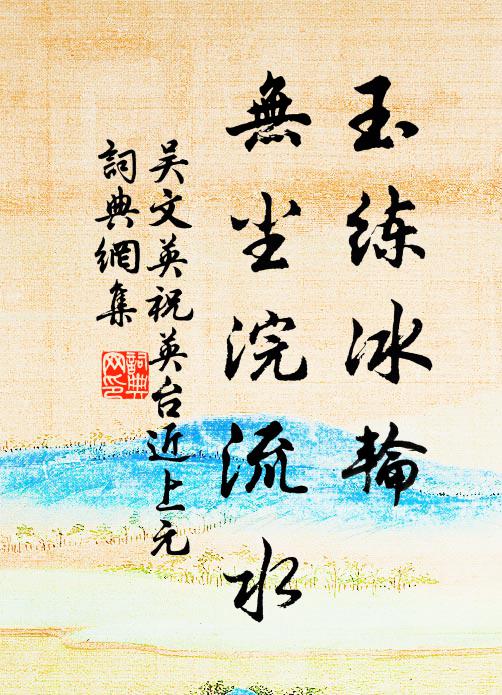 玉练冰輪
無尘浣流水
吴文英祝英台近上元
詞典網集
詞典
网印